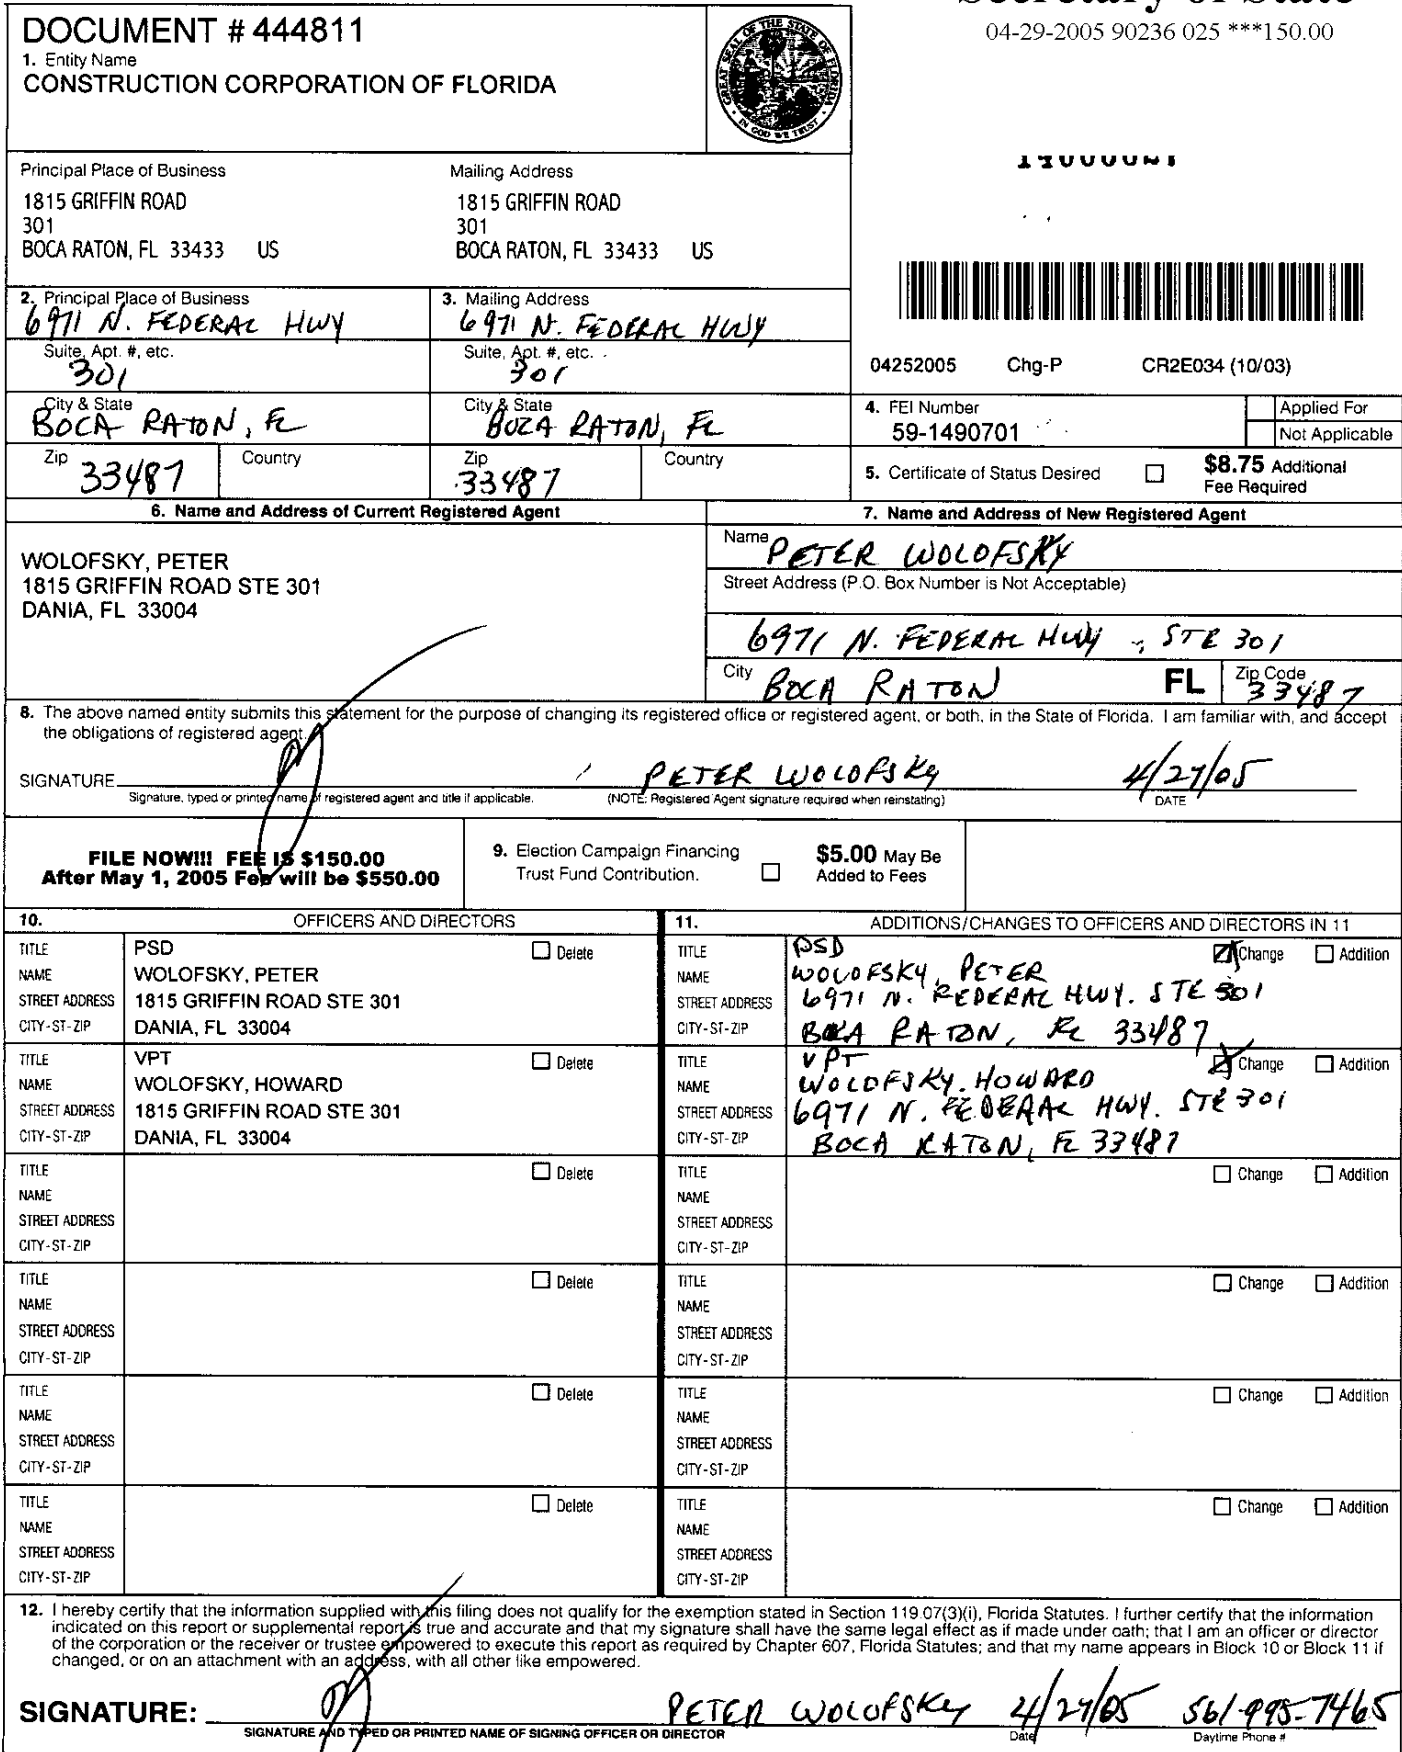 DOCUMENT # 444811
1. Entity Name
CONSTRUCTION CORPORATION OF FLORIDA
GREAT SEAL OF THE STATE OF FLORIDA
IN GOD WE TRUST
Secretary of State
04-29-2005 90236 025 ***150.00
Principal Place of Business
1815 GRIFFIN ROAD
301
BOCA RATON, FL 33433 US
Mailing Address
1815 GRIFFIN ROAD
301
BOCA RATON, FL 33433 US
2. Principal Place of Business
6971 N. FEDERAL HWY
Suite, Apt. #, etc.
301
City & State
BOCA RATON, FL
Zip 33487 Country
3. Mailing Address
6971 N. FEDERAL HWY
Suite, Apt. #, etc.
301
City & State
BOCA RATON, FL
Zip 33487 Country
04252005 Chg-P CR2E034 (10/03)
4. FEI Number
59-1490701
Applied For
Not Applicable
5. Certificate of Status Desired
$8.75 Additional
Fee Required
6. Name and Address of Current Registered Agent
WOLOFSKY, PETER
1815 GRIFFIN ROAD STE 301
DANIA, FL 33004
7. Name and Address of New Registered Agent
Name PETER WOLOFSKY
Street Address (P.O. Box Number is Not Acceptable)
6971 N. FEDERAL HWY, STE 301
City BOCA RATON FL Zip Code 33487
8. The above named entity submits this statement for the purpose of changing its registered office or registered agent, or both, in the State of Florida. I am familiar with, and accept
the obligations of registered agent.
SIGNATURE PETER WOLOFSKY 4/27/05
Signature, typed or printed name of registered agent and title if applicable. (NOTE: Registered Agent signature required when reinstating) DATE
FILE NOW!!! FEE IS $150.00
After May 1, 2005 Fee will be $550.00
9. Election Campaign Financing
Trust Fund Contribution.
$5.00 May Be
Added to Fees
10. OFFICERS AND DIRECTORS
TITLE PSD Delete
NAME WOLOFSKY, PETER
STREET ADDRESS 1815 GRIFFIN ROAD STE 301
CITY-ST-ZIP DANIA, FL 33004
TITLE VPT Delete
NAME WOLOFSKY, HOWARD
STREET ADDRESS 1815 GRIFFIN ROAD STE 301
CITY-ST-ZIP DANIA, FL 33004
TITLE Delete
NAME
STREET ADDRESS
CITY-ST-ZIP
TITLE Delete
NAME
STREET ADDRESS
CITY-ST-ZIP
TITLE Delete
NAME
STREET ADDRESS
CITY-ST-ZIP
TITLE Delete
NAME
STREET ADDRESS
CITY-ST-ZIP
11. ADDITIONS/CHANGES TO OFFICERS AND DIRECTORS IN 11
TITLE PSD Change Addition
NAME WOLOFSKY, PETER
STREET ADDRESS 6971 N. FEDERAL HWY. STE 301
CITY-ST-ZIP BOCA RATON, FL 33487
TITLE VPT Change Addition
NAME WOLOFSKY, HOWARD
STREET ADDRESS 6971 N. FEDERAL HWY. STE 301
CITY-ST-ZIP BOCA RATON, FL 33487
TITLE Change Addition
NAME
STREET ADDRESS
CITY-ST-ZIP
TITLE Change Addition
NAME
STREET ADDRESS
CITY-ST-ZIP
TITLE Change Addition
NAME
STREET ADDRESS
CITY-ST-ZIP
TITLE Change Addition
NAME
STREET ADDRESS
CITY-ST-ZIP
12. I hereby certify that the information supplied with this filing does not qualify for the exemption stated in Section 119.07(3)(i), Florida Statutes. I further certify that the information
indicated on this report or supplemental report is true and accurate and that my signature shall have the same legal effect as if made under oath; that I am an officer or director
of the corporation or the receiver or trustee empowered to execute this report as required by Chapter 607, Florida Statutes; and that my name appears in Block 10 or Block 11 if
changed, or on an attachment with an address, with all other like empowered.
SIGNATURE: PETER WOLOFSKY 4/27/05 561-995-7465
SIGNATURE AND TYPED OR PRINTED NAME OF SIGNING OFFICER OR DIRECTOR Date Daytime Phone #